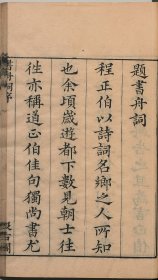 題書舟詞
程正伯以詩詞名鄉之人所知
也余頃歲遊都下數見朝士往
徃亦稱道正伯佳句獨尚書尤